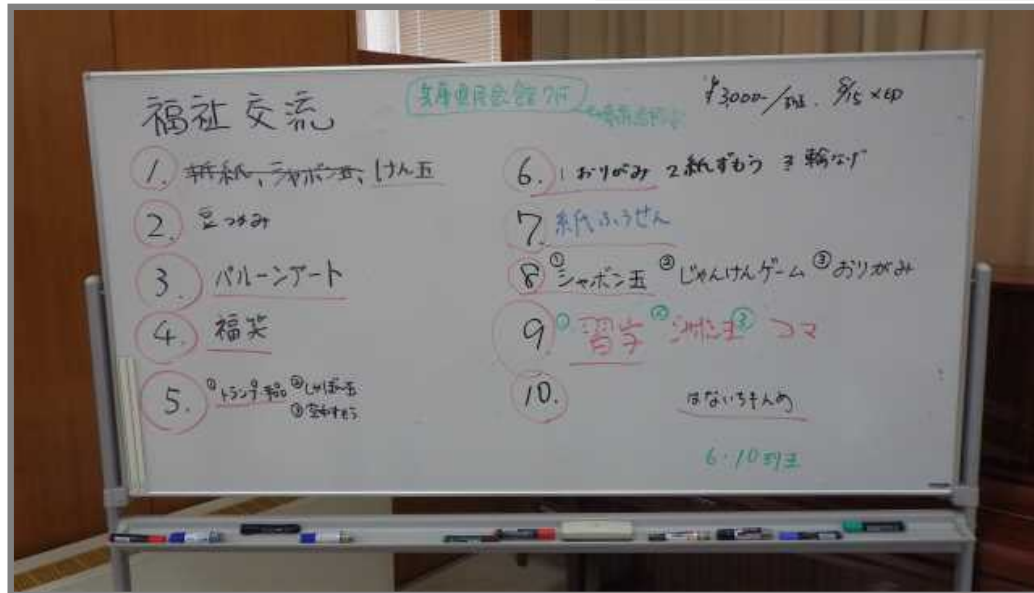 福祉交流
兵庫県民会館7F
¥3000-/班. 8/15 ×切
1. 折紙、シャボン玉、けん玉
2. 豆つかみ
3. バルーンアート
4. 福笑
5. ①トランプ手品 ②しゃぼん玉
③
6. 1 おりがみ 2 紙ずもう 3 輪なげ
7. 紙ふうせん
8 ①シャボン玉 ②じゃんけんゲーム ③おりがみ
9. ① 習字 ② ③ コマ
10. はないちもんめ
6・10班